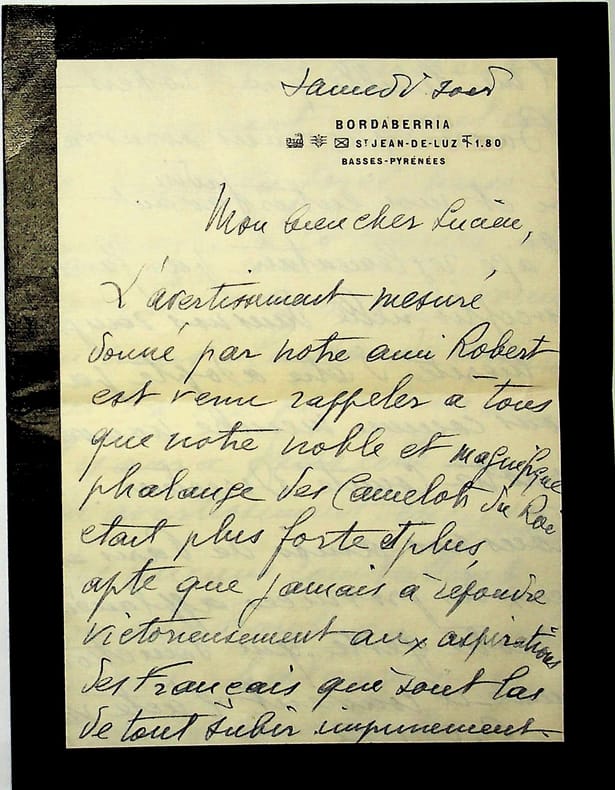 Samedi soir
BORDABERRIA
ST JEAN-DE-LUZ 1.80
BASSES-PYRÉNÉES
Mon bien cher Lucien,
L'avertissement mesuré
donné par notre ami Robert
est venu rappeler à tous
que notre noble et magnifique
phalange des Camelots du Roi
était plus forte et plus
apte que jamais à répondre
victorieusement aux aspirations
des Français qui sont las
de tout subir impunément